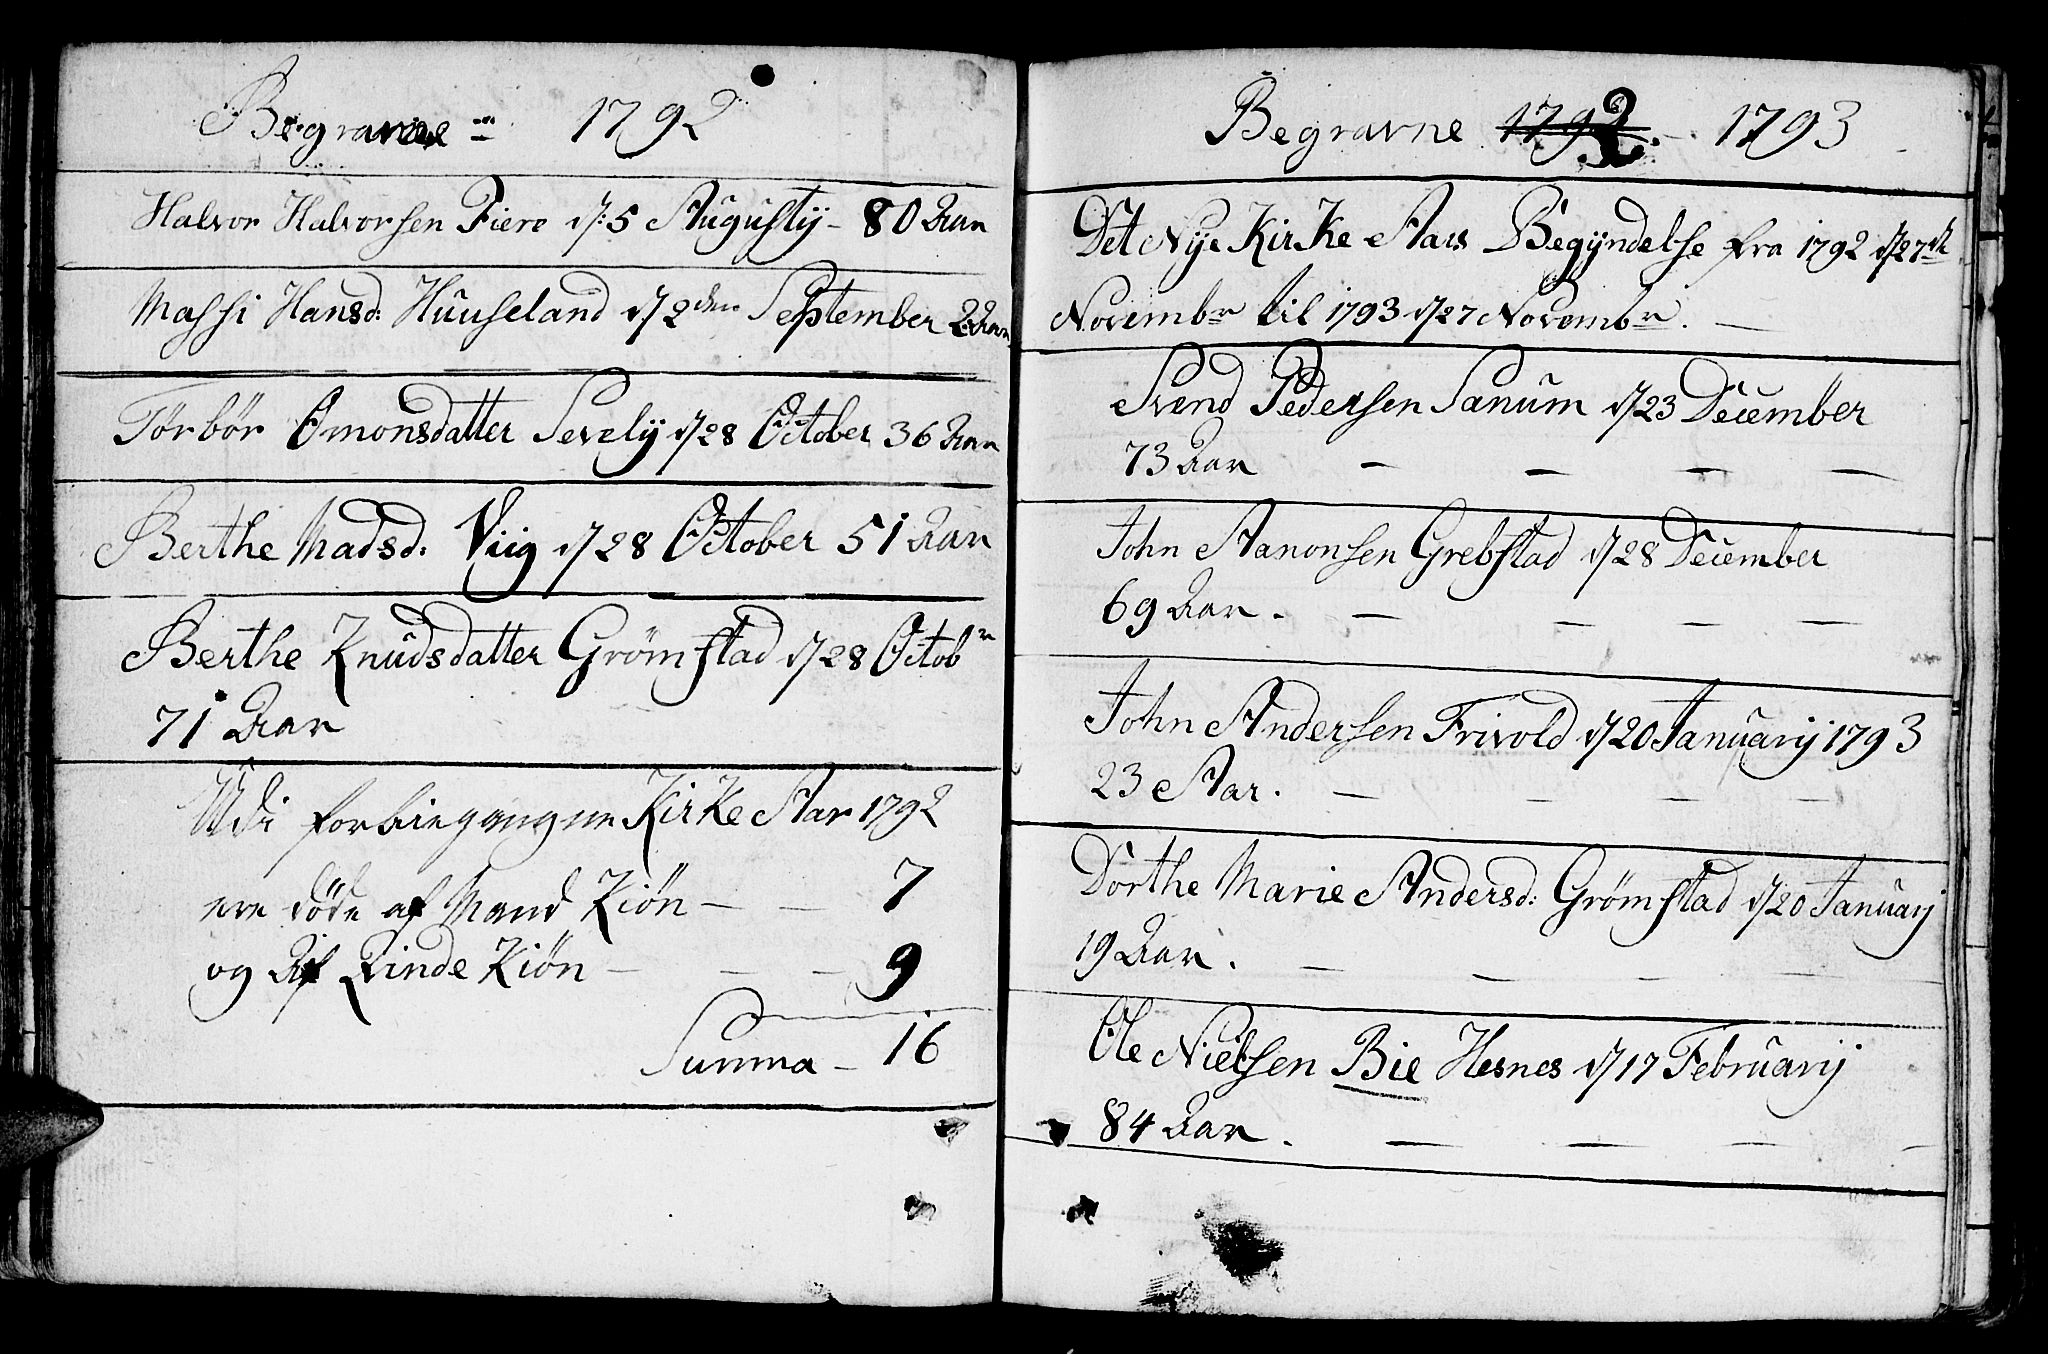 Begravne = 1792
Halvor Halvorsen Fiere d: 5 Augustij - 80 Aar
Massi Hansd: Huuseland d 2den September 2 Aar
Tørbør Omonsdatter Sevelij d 28 October 36 Aar
Berthe Madsd. Viig d 28 October 51 Aar
Berthe Knudsdatter Grømstad d 28 Octobr
71 Aar
Udi forbiegangne Kirke Aar 1792
ere døde af Mand Kiøn — — 7
og Af Qvinde Kiøn — — — 9
Summa - 16
Begravne 1792. - 1793
Det Nye Kirke Aars Begyndelse fra 1792 d 27de
Novembr til 1793 d 27 Novembr. —
Svend Pedersen Sanum d 23 December
73 Aar — — — —
John Aanonsen Grebstad d 28 December
69 Aar. — — — —
John Andersen Frivold d 20 Januarij 1793
23 Aar. — — — —
Dorthe Marie Andersd: Grømstad d 20 Januarij
19 Aar. — — — —
Ole Nielsen Bie Hesnes d 17 Februarij
84 Aar. — — — —